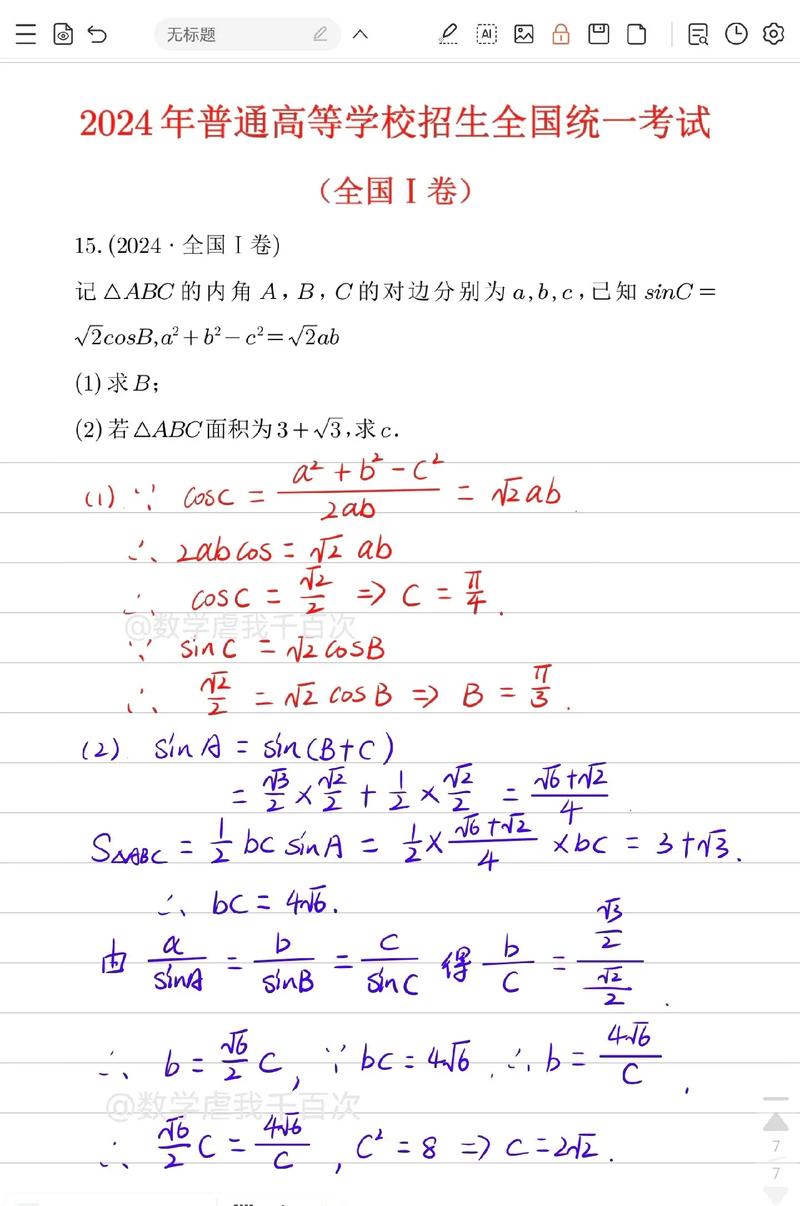 无标题
AI
2024年普通高等学校招生全国统一考试
（全国Ⅰ卷）
15.(2024·全国Ⅰ卷)
记△ABC的内角A，B，C的对边分别为a,b,c，已知sinC=
√2cosB,a²+b²-c²=√2ab
(1)求B；
(2)若△ABC面积为3+√3,求c.
(1) ∵ cosC = (a²+b²-c²)/(2ab) = √2ab
∴ 2abcos = √2 ab
∴ cosC = √2/2 => C = π/4.
@数学虐我千百次
∵ sinC = √2cosB
∴ √2/2 = √2 cosB => B = π/3.
(2) sinA = sin(B+C)
= √3/2 × √2/2 + 1/2 × √2/2 = (√6+√2)/4
S△ABC = 1/2 bc sinA = 1/2 × (√6+√2)/4 × bc = 3+√3.
∴ bc = 4√6.
由 a/sinA = b/sinB = c/sinC 得 b/c = (√3/2)/(√2/2).
∴ b = √6/2 c, ∵ bc = 4√6 ∴ b = 4√6/c,
@数学虐我千百次
∴ √6/2 c = 4√6/c, c² = 8 => c = 2√2.
7
7